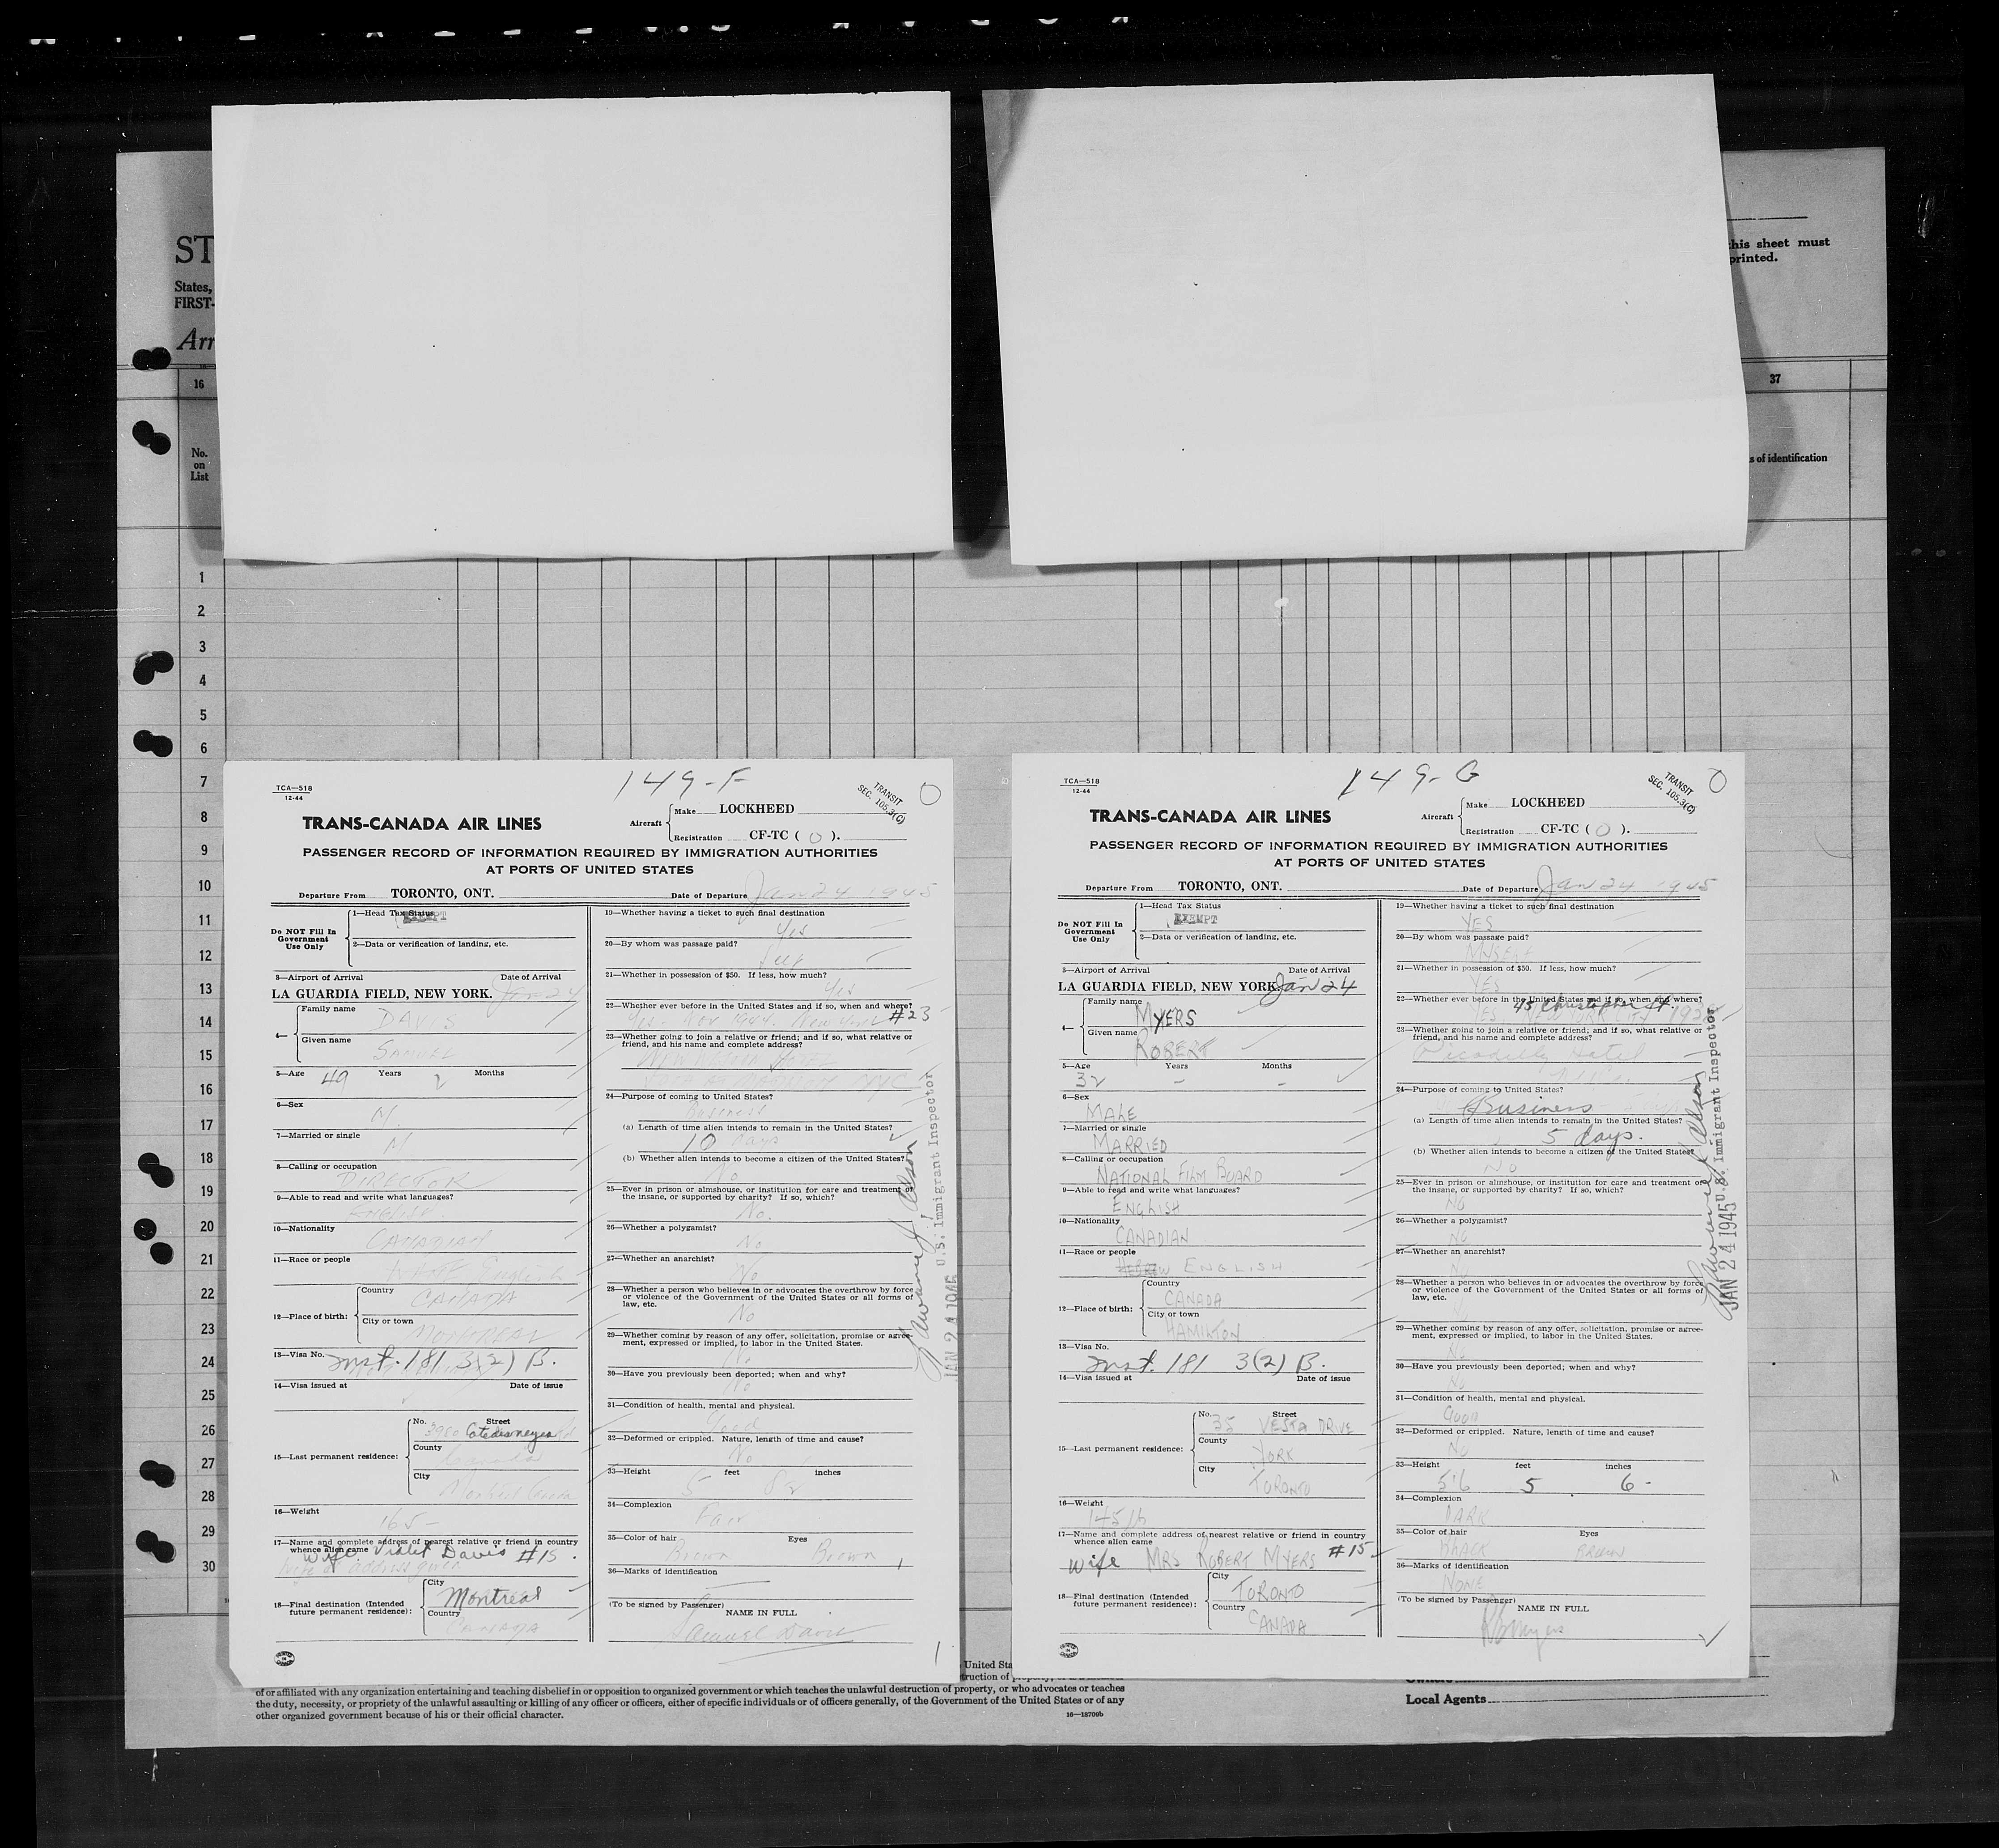 ST
States,
FIRST-
Arr
this sheet must
printed.
16
37
No.
on
List
s of identification
1
2
3
4
5
6
7
8
9
10
11
12
13
14
15
16
17
18
19
20
21
22
23
24
25
26
27
28
29
30
149-F
TCA—518
12-44
TRANSIT
SEC. 105.3(C)
0
TRANS-CANADA AIR LINES
Aircraft
Make LOCKHEED
Registration CF-TC ( 0 ).
PASSENGER RECORD OF INFORMATION REQUIRED BY IMMIGRATION AUTHORITIES
AT PORTS OF UNITED STATES
Departure From TORONTO, ONT. Date of Departure Jan 24 1945
Do NOT Fill In
Government
Use Only
1—Head Tax Status
EXEMPT
2—Data or verification of landing, etc.
3—Airport of Arrival Date of Arrival
LA GUARDIA FIELD, NEW YORK. Jan 24
4— Family name
DAVIS
Given name
SAMUEL
5—Age 49 Years 2 Months
6—Sex
M.
7—Married or single
M
8—Calling or occupation
DIRECTOR
9—Able to read and write what languages?
English
10—Nationality
CANADIAN
11—Race or people
English
12—Place of birth:
Country
CANADA
City or town
MONTREAL
13—Visa No. Inst. 181 3(2) B.
14—Visa issued at Date of issue
15—Last permanent residence:
No. Street
3980 Cotedesneiges
County
Canada
City
Montreal Canada
16—Weight
165-
17—Name and complete address of nearest relative or friend in country
whence alien came
Wife Violet Davis #15.
18—Final destination (Intended
future permanent residence):
City
Montreal
Country
CANADA
19—Whether having a ticket to such final destination
Yes
20—By whom was passage paid?
Self
21—Whether in possession of $50. If less, how much?
Yes
22—Whether ever before in the United States and if so, when and where?
Yes Nov New York #23
23—Whether going to join a relative or friend; and if so, what relative or
friend, and his name and complete address?
NYC
24—Purpose of coming to United States?
Business
(a) Length of time alien intends to remain in the United States?
10 days
(b) Whether alien intends to become a citizen of the United States?
No
25—Ever in prison or almshouse, or institution for care and treatment of
the insane, or supported by charity? If so, which?
No.
26—Whether a polygamist?
No
27—Whether an anarchist?
No
28—Whether a person who believes in or advocates the overthrow by force
or violence of the Government of the United States or all forms of
law, etc.
No
29—Whether coming by reason of any offer, solicitation, promise or agree-
ment, expressed or implied, to labor in the United States.
No
30—Have you previously been deported; when and why?
No
31—Condition of health, mental and physical.
Good
32—Deformed or crippled. Nature, length of time and cause?
No
33—Height feet inches
5 8½
34—Complexion
Fair
35—Color of hair Eyes
Brown Brown
36—Marks of identification
(To be signed by Passenger)
NAME IN FULL
Samuel Davis
U.S. Immigrant Inspector
JAN 24 1945
149-G
TCA—518
12-44
TRANSIT
SEC. 105.3(C)
0
TRANS-CANADA AIR LINES
Aircraft
Make LOCKHEED
Registration CF-TC ( 0 ).
PASSENGER RECORD OF INFORMATION REQUIRED BY IMMIGRATION AUTHORITIES
AT PORTS OF UNITED STATES
Departure From TORONTO, ONT. Date of Departure Jan 24 1945
Do NOT Fill In
Government
Use Only
1—Head Tax Status
EXEMPT
2—Data or verification of landing, etc.
3—Airport of Arrival Date of Arrival
LA GUARDIA FIELD, NEW YORK. Jan 24
4— Family name
MYERS
Given name
ROBERT
5—Age Years Months
32 - -
6—Sex
MALE
7—Married or single
MARRIED
8—Calling or occupation
NATIONAL FILM BOARD
9—Able to read and write what languages?
ENGLISH
10—Nationality
CANADIAN
11—Race or people
HEBREW ENGLISH
12—Place of birth:
Country
CANADA
City or town
HAMILTON
13—Visa No.
Inst. 181 3(2) B.
14—Visa issued at Date of issue
15—Last permanent residence:
No. Street
35 VESTA DRIVE
County
YORK
City
TORONTO
16—Weight
145 lb
17—Name and complete address of nearest relative or friend in country
whence alien came
Wife MRS ROBERT MYERS #15
18—Final destination (Intended
future permanent residence):
City
TORONTO
Country
CANADA
19—Whether having a ticket to such final destination
YES
20—By whom was passage paid?
MYSELF
21—Whether in possession of $50. If less, how much?
YES
22—Whether ever before in the United States and if so, when and where?
45 Christopher St.
YES
23—Whether going to join a relative or friend; and if so, what relative or
friend, and his name and complete address?
Picadilly Hotel
24—Purpose of coming to United States?
Business
(a) Length of time alien intends to remain in the United States?
5 days.
(b) Whether alien intends to become a citizen of the United States?
No
25—Ever in prison or almshouse, or institution for care and treatment of
the insane, or supported by charity? If so, which?
NO
26—Whether a polygamist?
NO
27—Whether an anarchist?
28—Whether a person who believes in or advocates the overthrow by force
or violence of the Government of the United States or all forms of
law, etc.
29—Whether coming by reason of any offer, solicitation, promise or agree-
ment, expressed or implied, to labor in the United States.
No
30—Have you previously been deported; when and why?
No
31—Condition of health, mental and physical.
GOOD
32—Deformed or crippled. Nature, length of time and cause?
NO
33—Height feet inches
5'6 5 6-
34—Complexion
DARK
35—Color of hair Eyes
BLACK BROWN
36—Marks of identification
NONE
(To be signed by Passenger)
NAME IN FULL
R Myers
U.S. Immigrant Inspector
JAN 24 1945
United Sta
truction of
of or affiliated with any organization entertaining and teaching disbelief in or opposition to organized government or which teaches the unlawful destruction of property, or who advocates or teaches
the duty, necessity, or propriety of the unlawful assaulting or killing of any officer or officers, either of specific individuals or of officers generally, of the Government of the United States or of any
other organized government because of his or their official character.
16—18709b
Owners
Local Agents